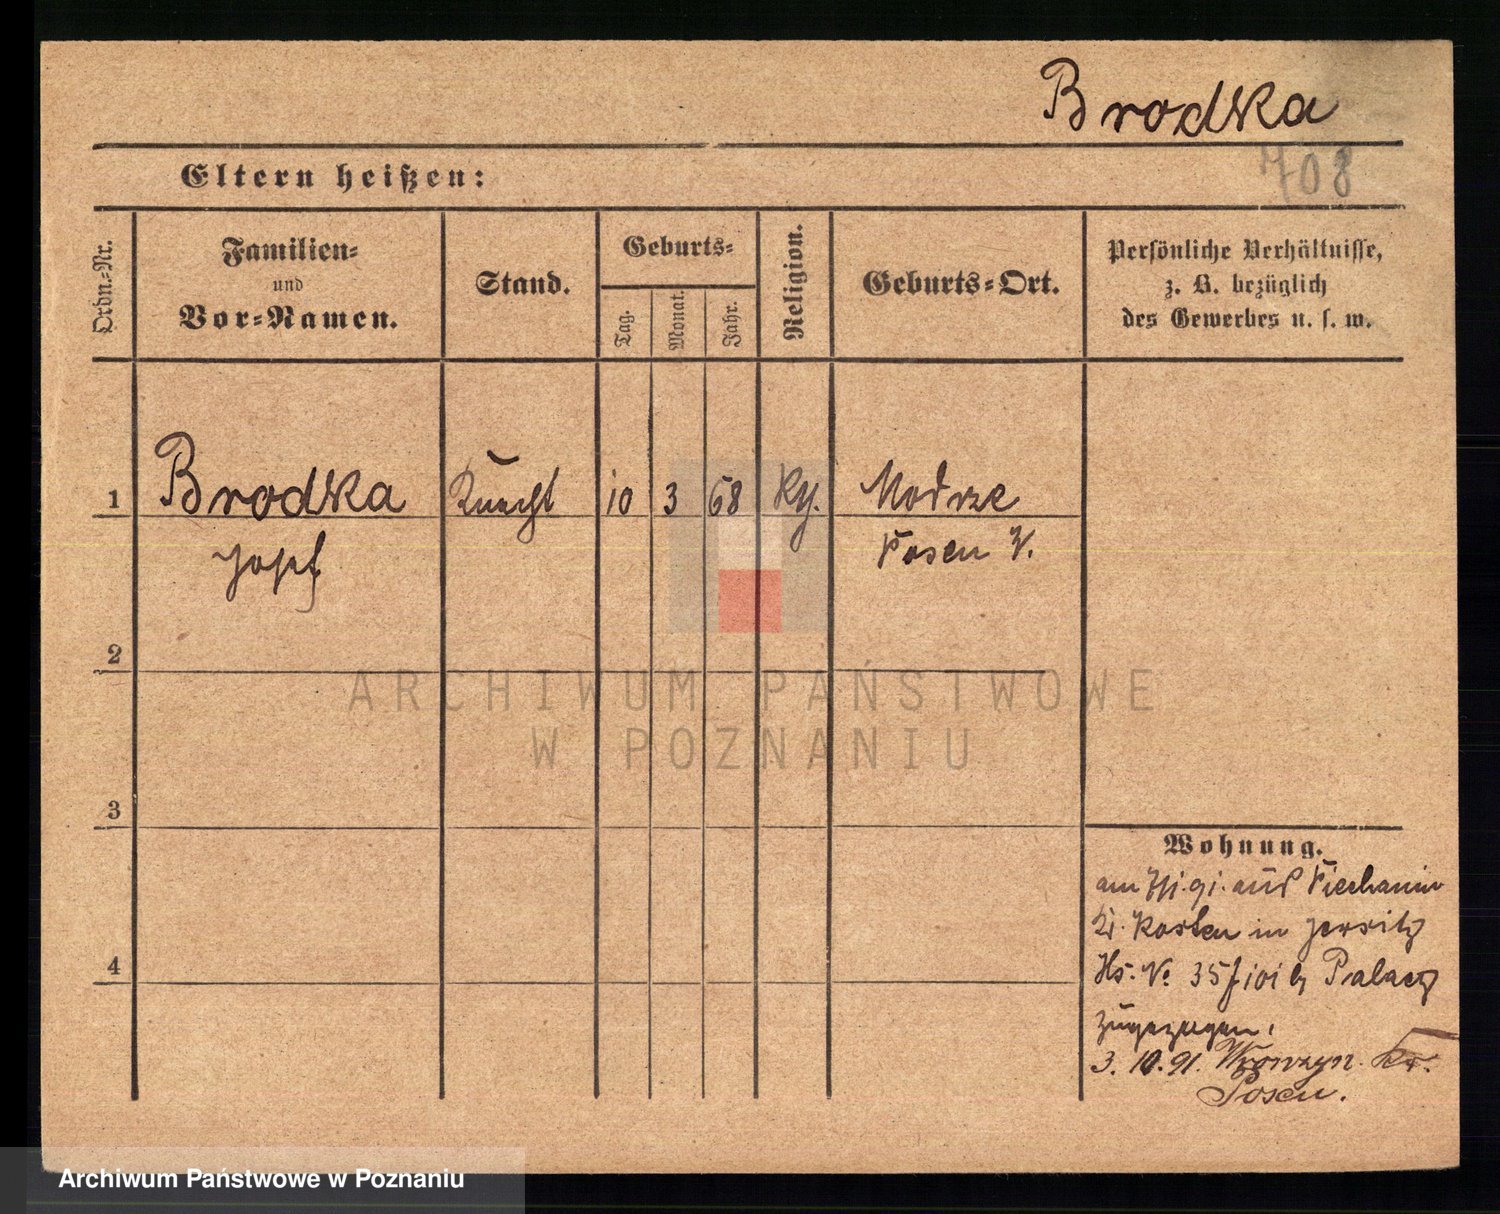 Brodka
708
Eltern heißen:
Ordn.-Nr.
Familien-
und
Vor-Namen.
Stand.
Geburts-
Tag.
Monat.
Jahr.
Religion.
Geburts-Ort.
Persönliche Verhältnisse,
z. B. bezüglich
des Gewerbes u. s. w.
1
Brodka
Knecht
10
3
68
Modrze
Josef
Posen W.
2
ARCHIWUM PAŃSTWOWE
W POZNANIU
3
Wohnung.
am aus Piechanin
Kr. Kosten in Jersitz
4
Hs. No 35 b
zugezogen.
3. 10. 91. Kr.
Posen.
Archiwum Państwowe w Poznaniu